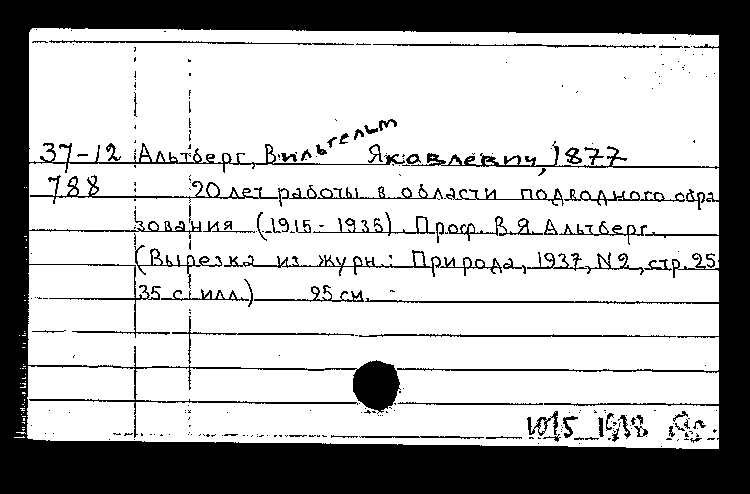 37-12 Альтберг, Вильгельм Яковлевич, 1877
788 20 лет работы в области подводного обра
зования (1915-1935). Проф. В.Я. Альтберг.
(Вырезка из журн.: Природа, 1937, N2, стр. 25-
35 с илл.) 25 см.
1938